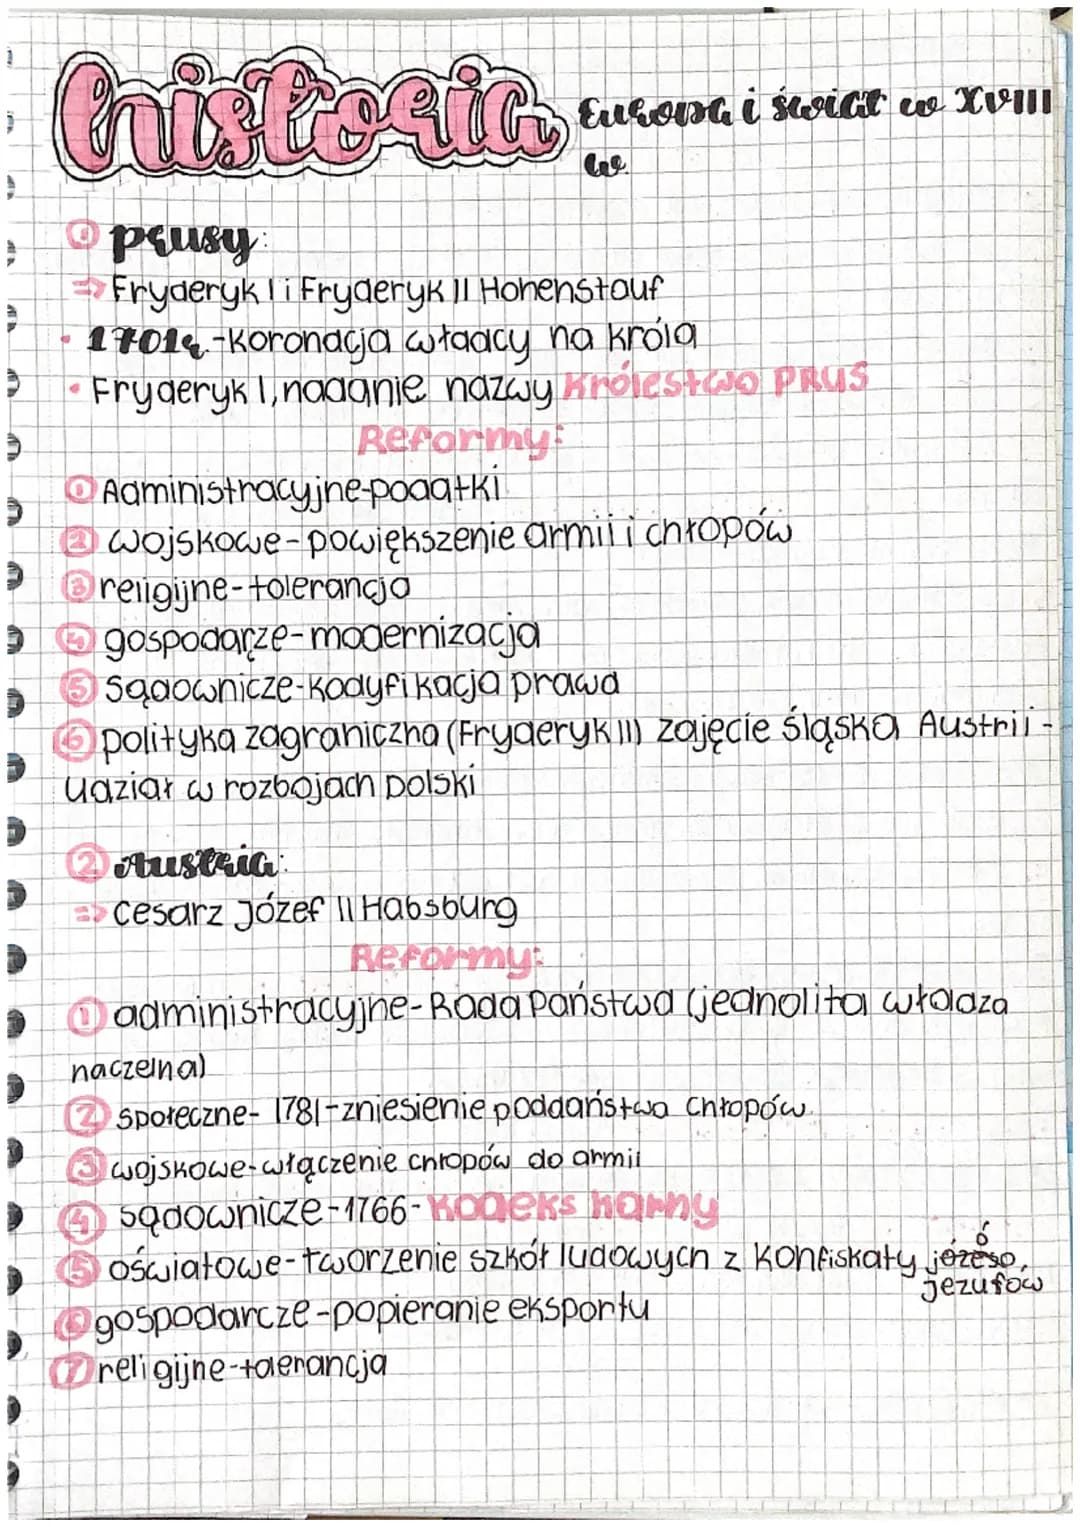 historia Europa i świat w XVIII
w.
① prusy:
⇒ Fryderyk I i Fryderyk II Hohenstauf
• 1701r.-koronacja władcy na króla
• Fryderyk I, nadanie nazwy Królestwo PRUS
Reformy:
① Administracyjne-podatki
② wojskowe-powiększenie armii i chłopów
③ religijne-tolerancja
④ gospodarze-modernizacja
⑤ sądownicze-kodyfikacja prawa
⑥ polityka zagraniczna (Fryderyk III) zajęcie śląska Austrii-
udział w rozbojach polski
② Austria:
⇒ Cesarz Józef II Habsburg
Reformy:
① administracyjne-Rada Państwa (jednolita władza
naczelna)
② społeczne- 1781-zniesienie poddaństwa chłopów.
③ wojskowe-włączenie chłopów do armii
④ sądownicze-1766-Kodeks karny
⑤ oświatowe-tworzenie szkół ludowych z konfiskaty
jezusów
⑥ gospodarcze-popieranie eksportu
⑦ religijne-tolerancja